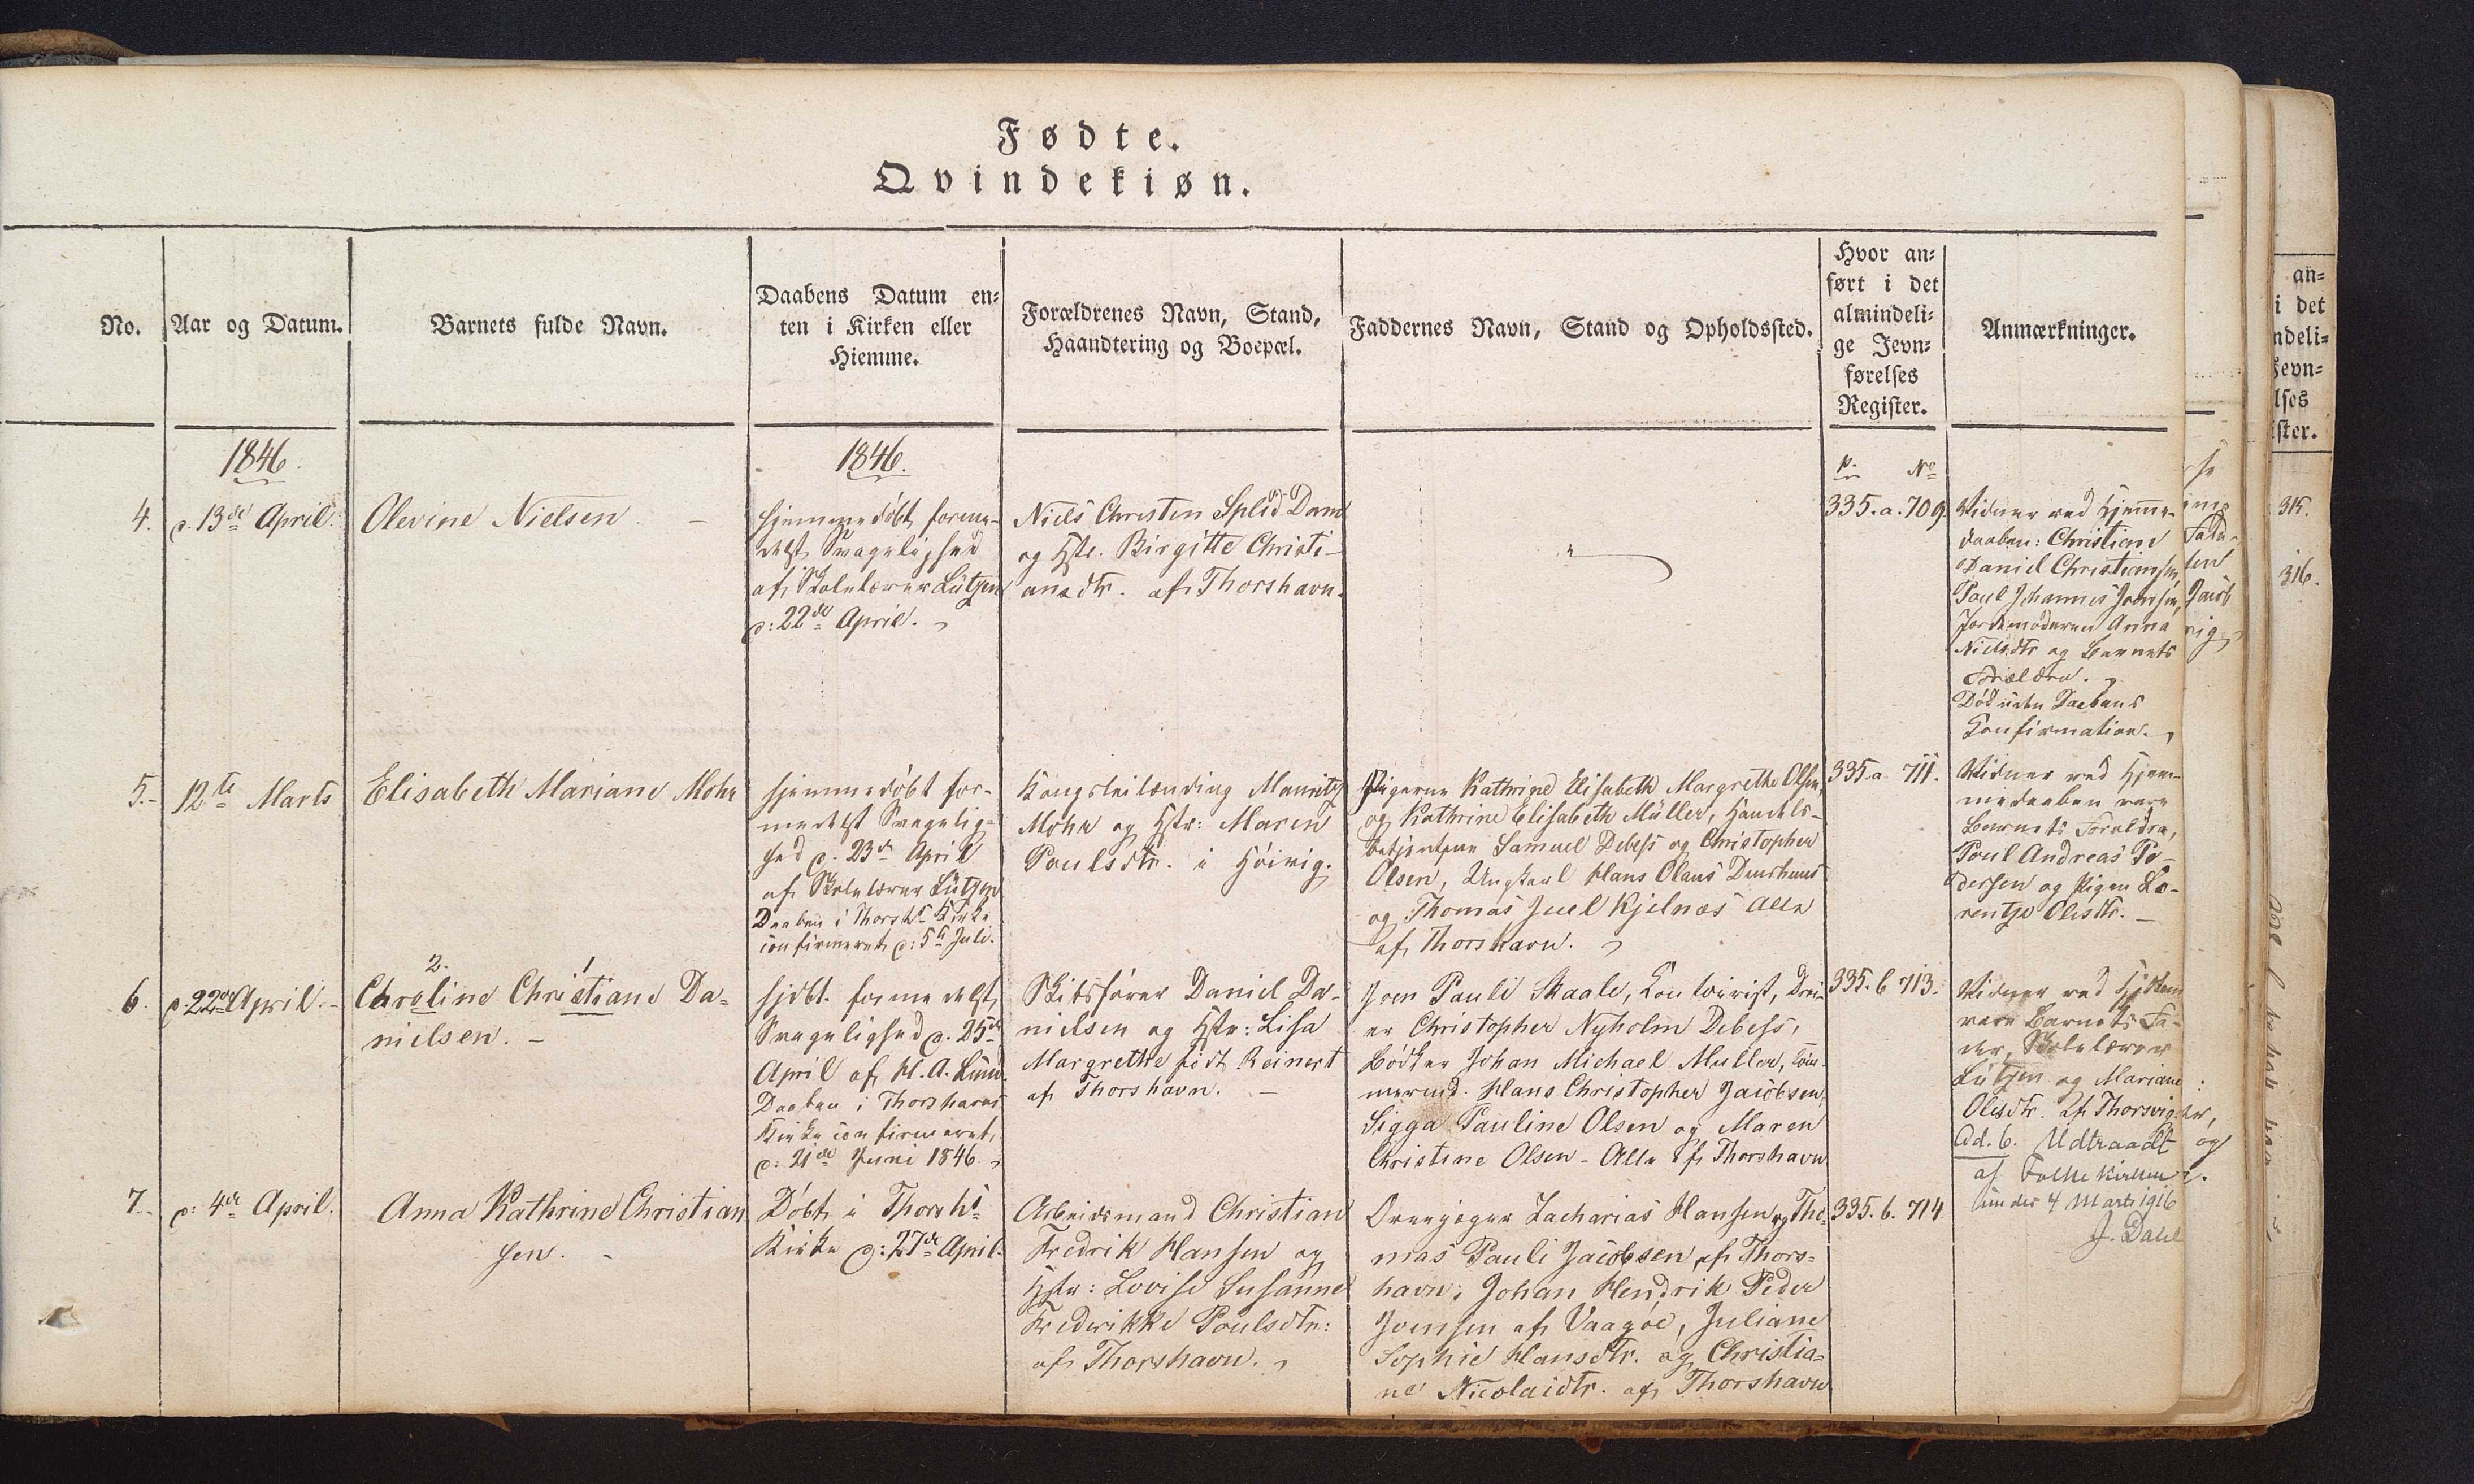 Fødte.
Qvindekiøn.
No.
Aar og Datum.
Barnets fulde Navn.
Daabens Datum en-
ten i Kirken eller
Hiemme.
Forældrenes Navn, Stand,
Haandtering og Boepæl.
Faddernes Navn, Stand og Opholdssted.
Hvor an-
ført i det
almindeli-
ge Jevn-
førelses
Register.
Anmærkninger.
1846.
1846.
p. No
4.
d. 13de April.
Olevine Nielsen. -
hjemmedøbt forme-
delst Svagelighed
af Skolelærer Lützen
d: 22de April.
Niels Christen Splid Dam
og Hstr. Birgitte Christi-
ansdtr. af Thorshavn.
335.a.709.
Vidner ved Hjemme-
daaben: Christian
Daniel Christiansen,
Poul Johannes Joensen,
Jordemoderen Anna
Nielsdtr og Barnets
Forældre.
Død uden Daabens
Confirmation.
5.-
12te Marts
Elisabeth Mariane Mohr
hjemmedøbt for-
medelst Svagelig-
hed d. 23de April
af Skolelærer Lützen
Daaben i Thorsh. Kirke
confirmeret d: 5te Juli.
Kongsleilænding Mauritz
Mohr og Hstr: Maren
Poulsdtr. i Hóivig.
Pigerne Kathrine Elisabeth Margrethe Olsen,
og Kathrine Elisabeth Müller, Handels-
betjentene Samuel Debess og Christopher
Olsen, Ungkarl Hans Olaus Duurhuus
og Thomas Juel Kjelnæs Alle
af Thorshavn.
335.a 711.
Vidner ved Hjem-
medaaben vare
Barnets Forældre,
Poul Andreas Pe-
dersen og Pigen Lo-
rentze Olesdtr. -
6.
d. 22de April. -
2. 1
Caroline Christiane Da-
nielsen. -
hjdbt. formedelst
Svagelighed d. 25de
April af H. A. Lund.
Daaben i Thorshavns
Kirke confirmeret,
d: 21de Juni 1846.
Skibsfører Daniel Da-
nielsen og Hstr: Lisa
Margrethe født Reinert
af Thorshavn. -
Joen Pauli Skaale, Contoirist, Drei-
er Christopher Nyholm Debess,
Bødker Johan Michael Müller, Tøm-
mermd. Hans Christopher Jacobsen,
Sigga Pauline Olsen og Maren
Christine Olsen - Alle af Thorshavn
335.b 713.
Vidner ved
vare Barnets Fa-
der, Skolelærer
Lützen og Mariane
Olesdtr. af Thorsvig
Ad. 6. Udtraadt
af Folkekirken
under 4 Marts 1916
J. Dahl
7.
d: 4de April.
Anna Kathrine Christian
sen. -
Døbt i Thorsh.
Kirke d: 27de April.
Arbeidsmand Christian
Fredrik Hansen og
Hstr: Lovise Susanne
Frederikke Poulsdtr:
af Thorshavn.
Overjæger Zacharias Hansen og Tho-
mas Pauli Jacobsen af Thors-
havn, Johan Hendrik Peder
Joensen af Vaagøe, Juliane
Sophie Hansdtr. og Christia-
ne Nicolaidtr. af Thorshavn
335.b.714
an-
i det
ndeli-
Jevn-
lses
ister.
315.
316.